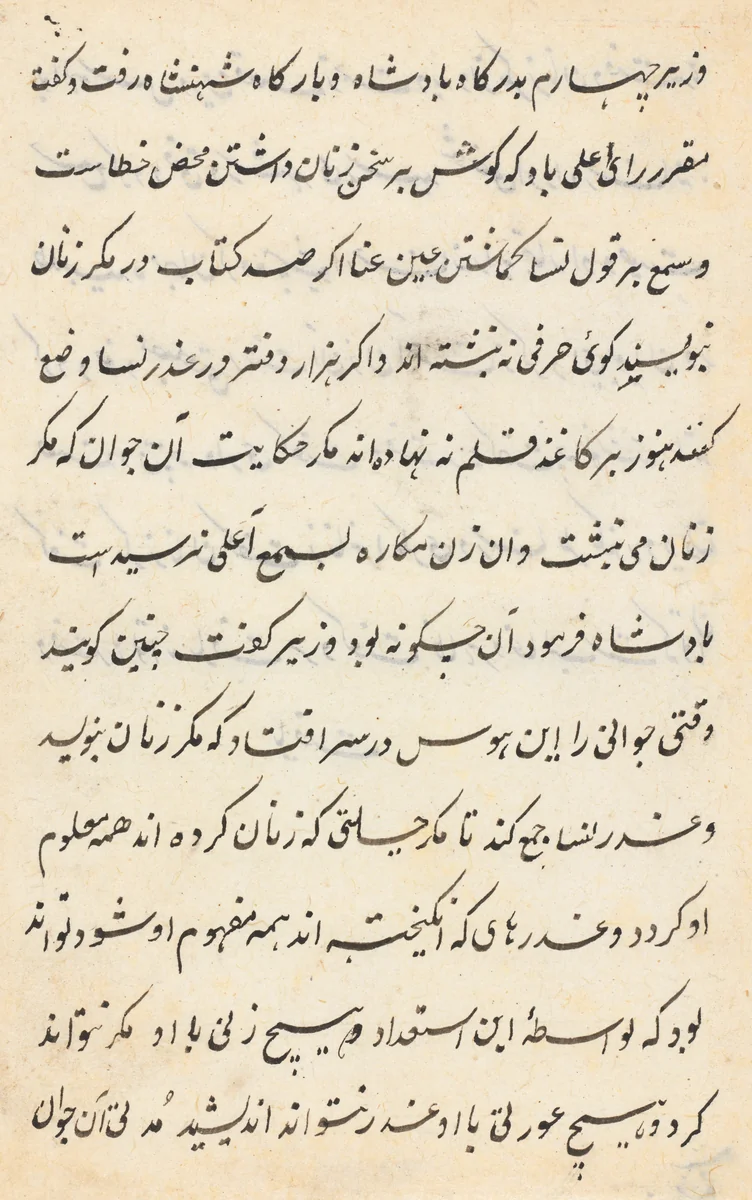 وزیر چهارم بدرکاه بادشاه و بارکاه شهنشاه رفت و کفت
مقرر رای اعلی باد که کوش بر سخن زنان داشتن محض خطاست
و سمع بر قول نسا کماشتن عین عنا اکر صد کتاب در مکر زنان
نبویسند کوئ حرفی نه نبشته اند و اکر هزار دفتر در غدر نسا وضع
کنند هنوز بر کاغذ قلم نه نهاده اند مکر حکایت آن جوان که مکر
زنان می نبشت و ان زن مکاره بسمع اعلی نرسیده است
بادشاه فرمود آن چکونه بود وزیر کفت چنین کویند
وقتی جوانی را این هوس در سر افتاد که مکر زنان بنویسد
و غدر نسا جمع کند تا مکر حیلتی که زنان کرده اند همه معلوم
او کردد و غدرهای که انکیخته اند همه مفهوم او شود تواند
بود که بواسطهٔ این استعداد هیچ زنی با او مکر نتواند
کرد و هیچ عورتی با او غدر نتواند اندیشید مُدتی آن جوان